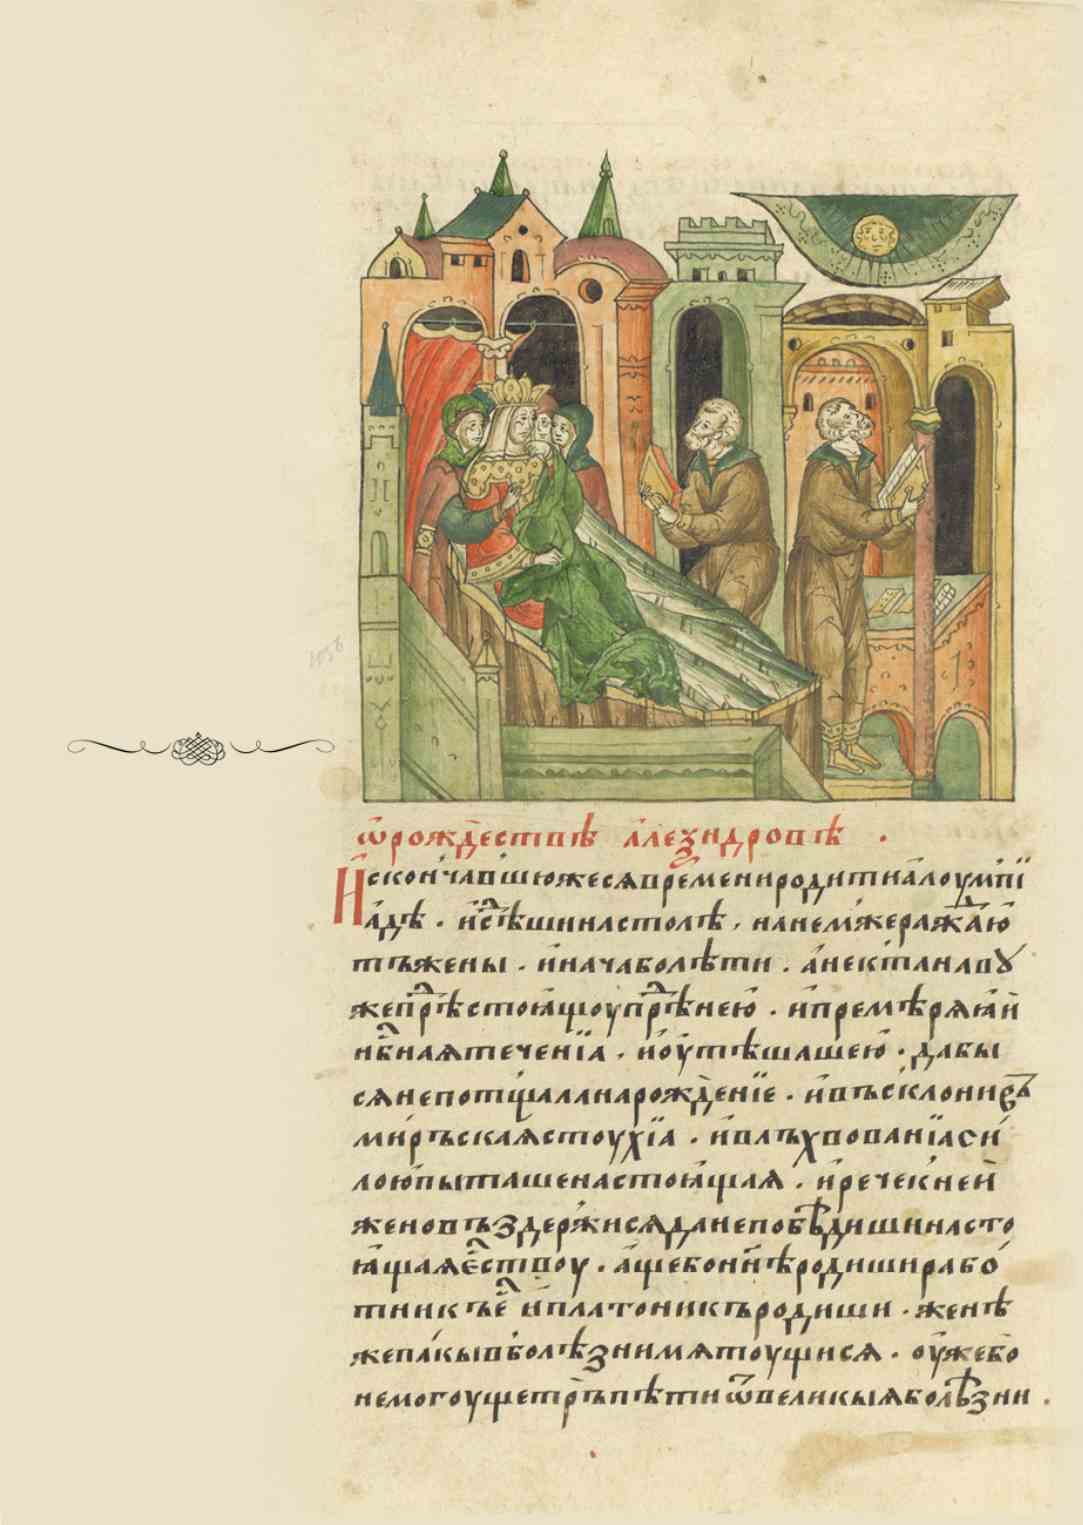 ѿ рождествѣ алеѯандровѣ .
И скончавшюжеся времени родитиа лоумпї
адѣ . и сѣ̾шина столѣ , нанемже ражаю
тъ жены . и нача болѣти . а нектанавꙋ
же прѣ̾стоꙗщоу прѣ̾ нею . и премѣряꙗй
нб̾ная теченїа . и оутѣшаше ю . да бы
ся не потщала на рожденїе . и въсклонивъ
миръская стоухїа . и влъхвованїа си
лою пыташе настоꙗщая . и рече к ней
жено въздержися да не побѣдиши насто
ꙗщая е̾ствоу . аще бо нн҃ѣ родиши рабо
тникъ е̾ и платоникъ родиши . женѣ
же пакы в болѣзни мятоущися . оуже бо
не могоуще тръпѣти ѿ великыя болѣзни .